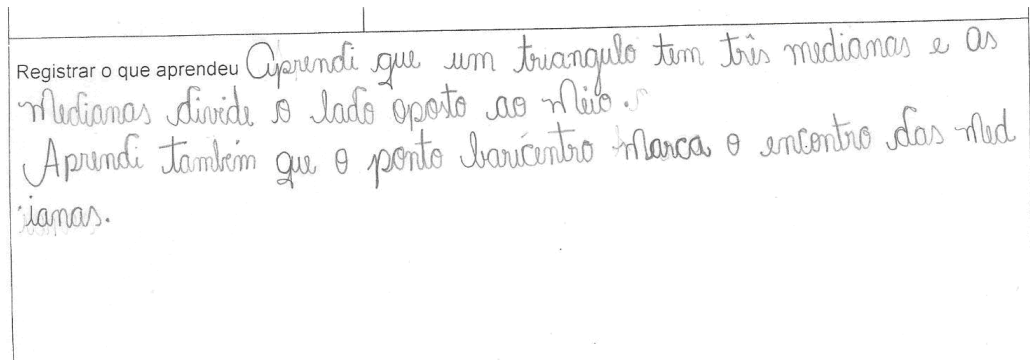 Registrar o que aprendeu Aprendi que um triangulo tem três medianas e as
Medianas divide o lado oposto ao Meio.
Aprendi também que o ponto baricentro Marca o encontro das Med
ianas.